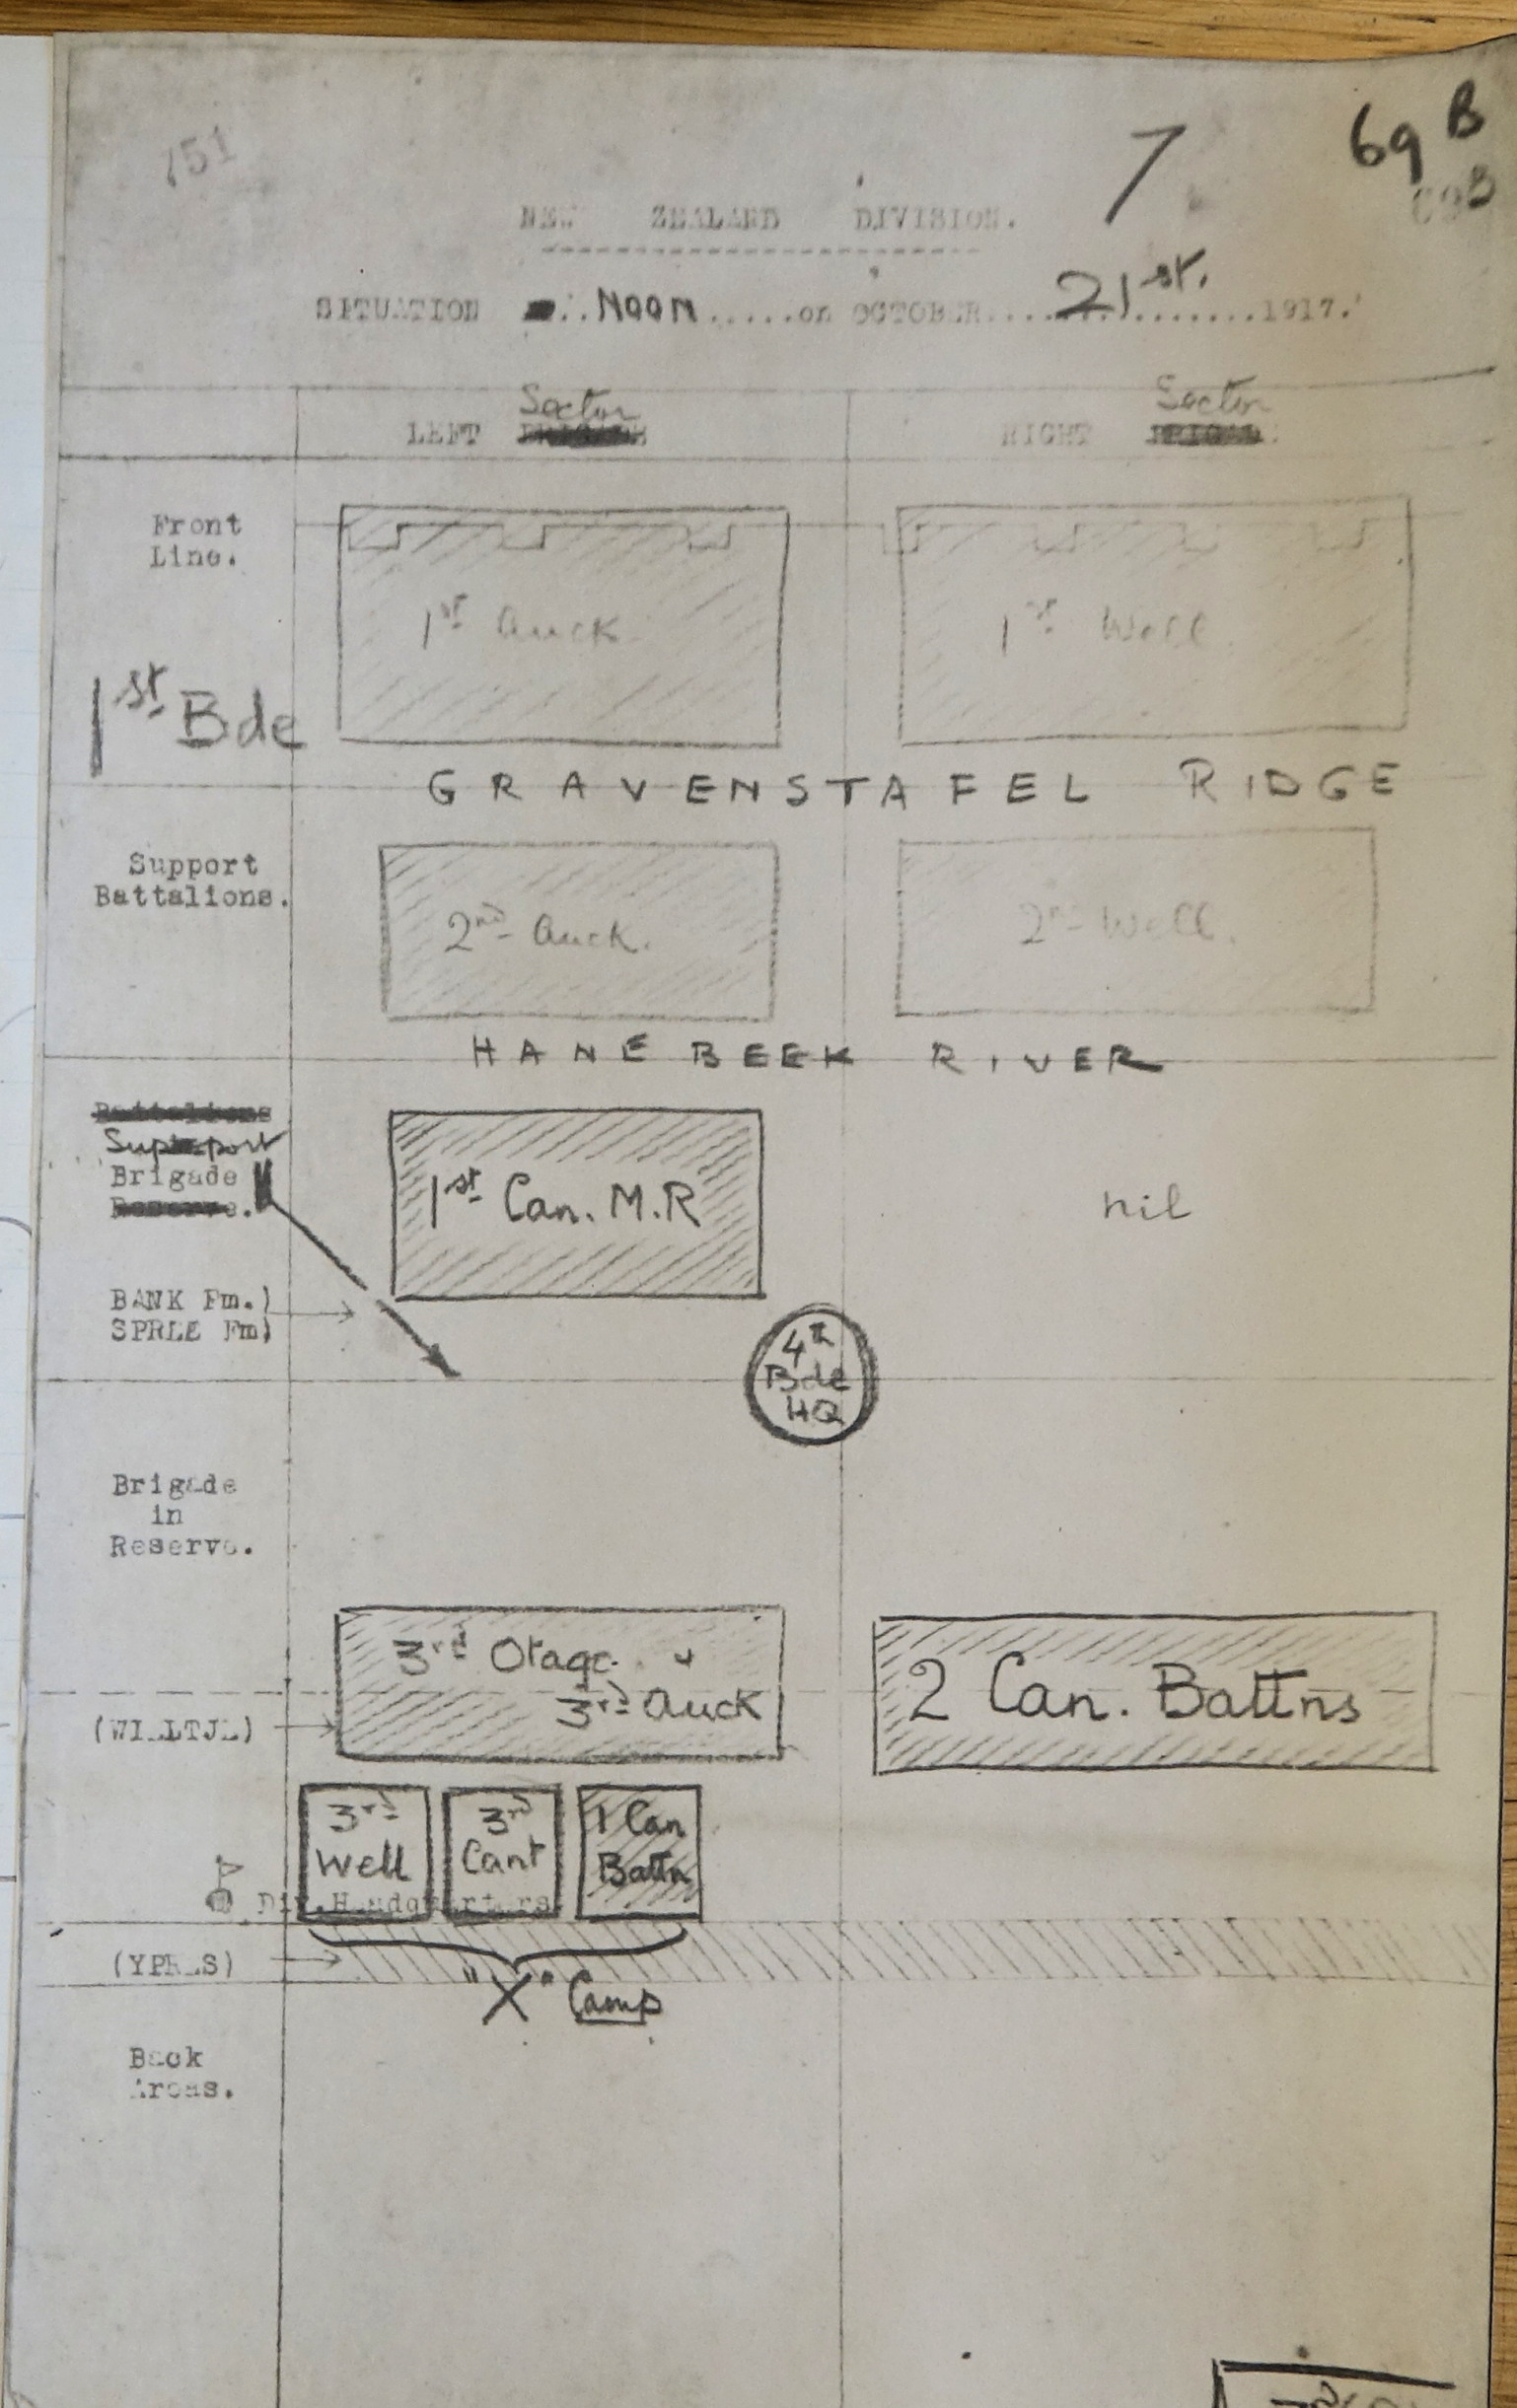 151
7
69 B
69B
NEW ZEALAND DIVISION.
SITUATION Noon.....on OCTOBER....21st.......1917.
Sector Sector
LEFT BRIGADE RIGHT BRIGADE
Front
Line.
1st Auck 1st Well.
1st Bde
GRAVENSTAFEL RIDGE
Support
Battalions.
2nd Auck. 2nd Well.
HANEBEEK RIVER
Battalions
Support
Brigade
Reserve.
1st Can. M.R
nil
BANK Fm.)
SPREE Fm)
4th
Bde
HQ
Brigade
in
Reserve.
3rd Otago. &
3rd Auck
2 Can. Battns
(WIELTJE)
3rd
Well
3rd
Cant
1 Can
Battn
Div. Headquarters
(YPRES)
"X" Camp
Back
Areas.